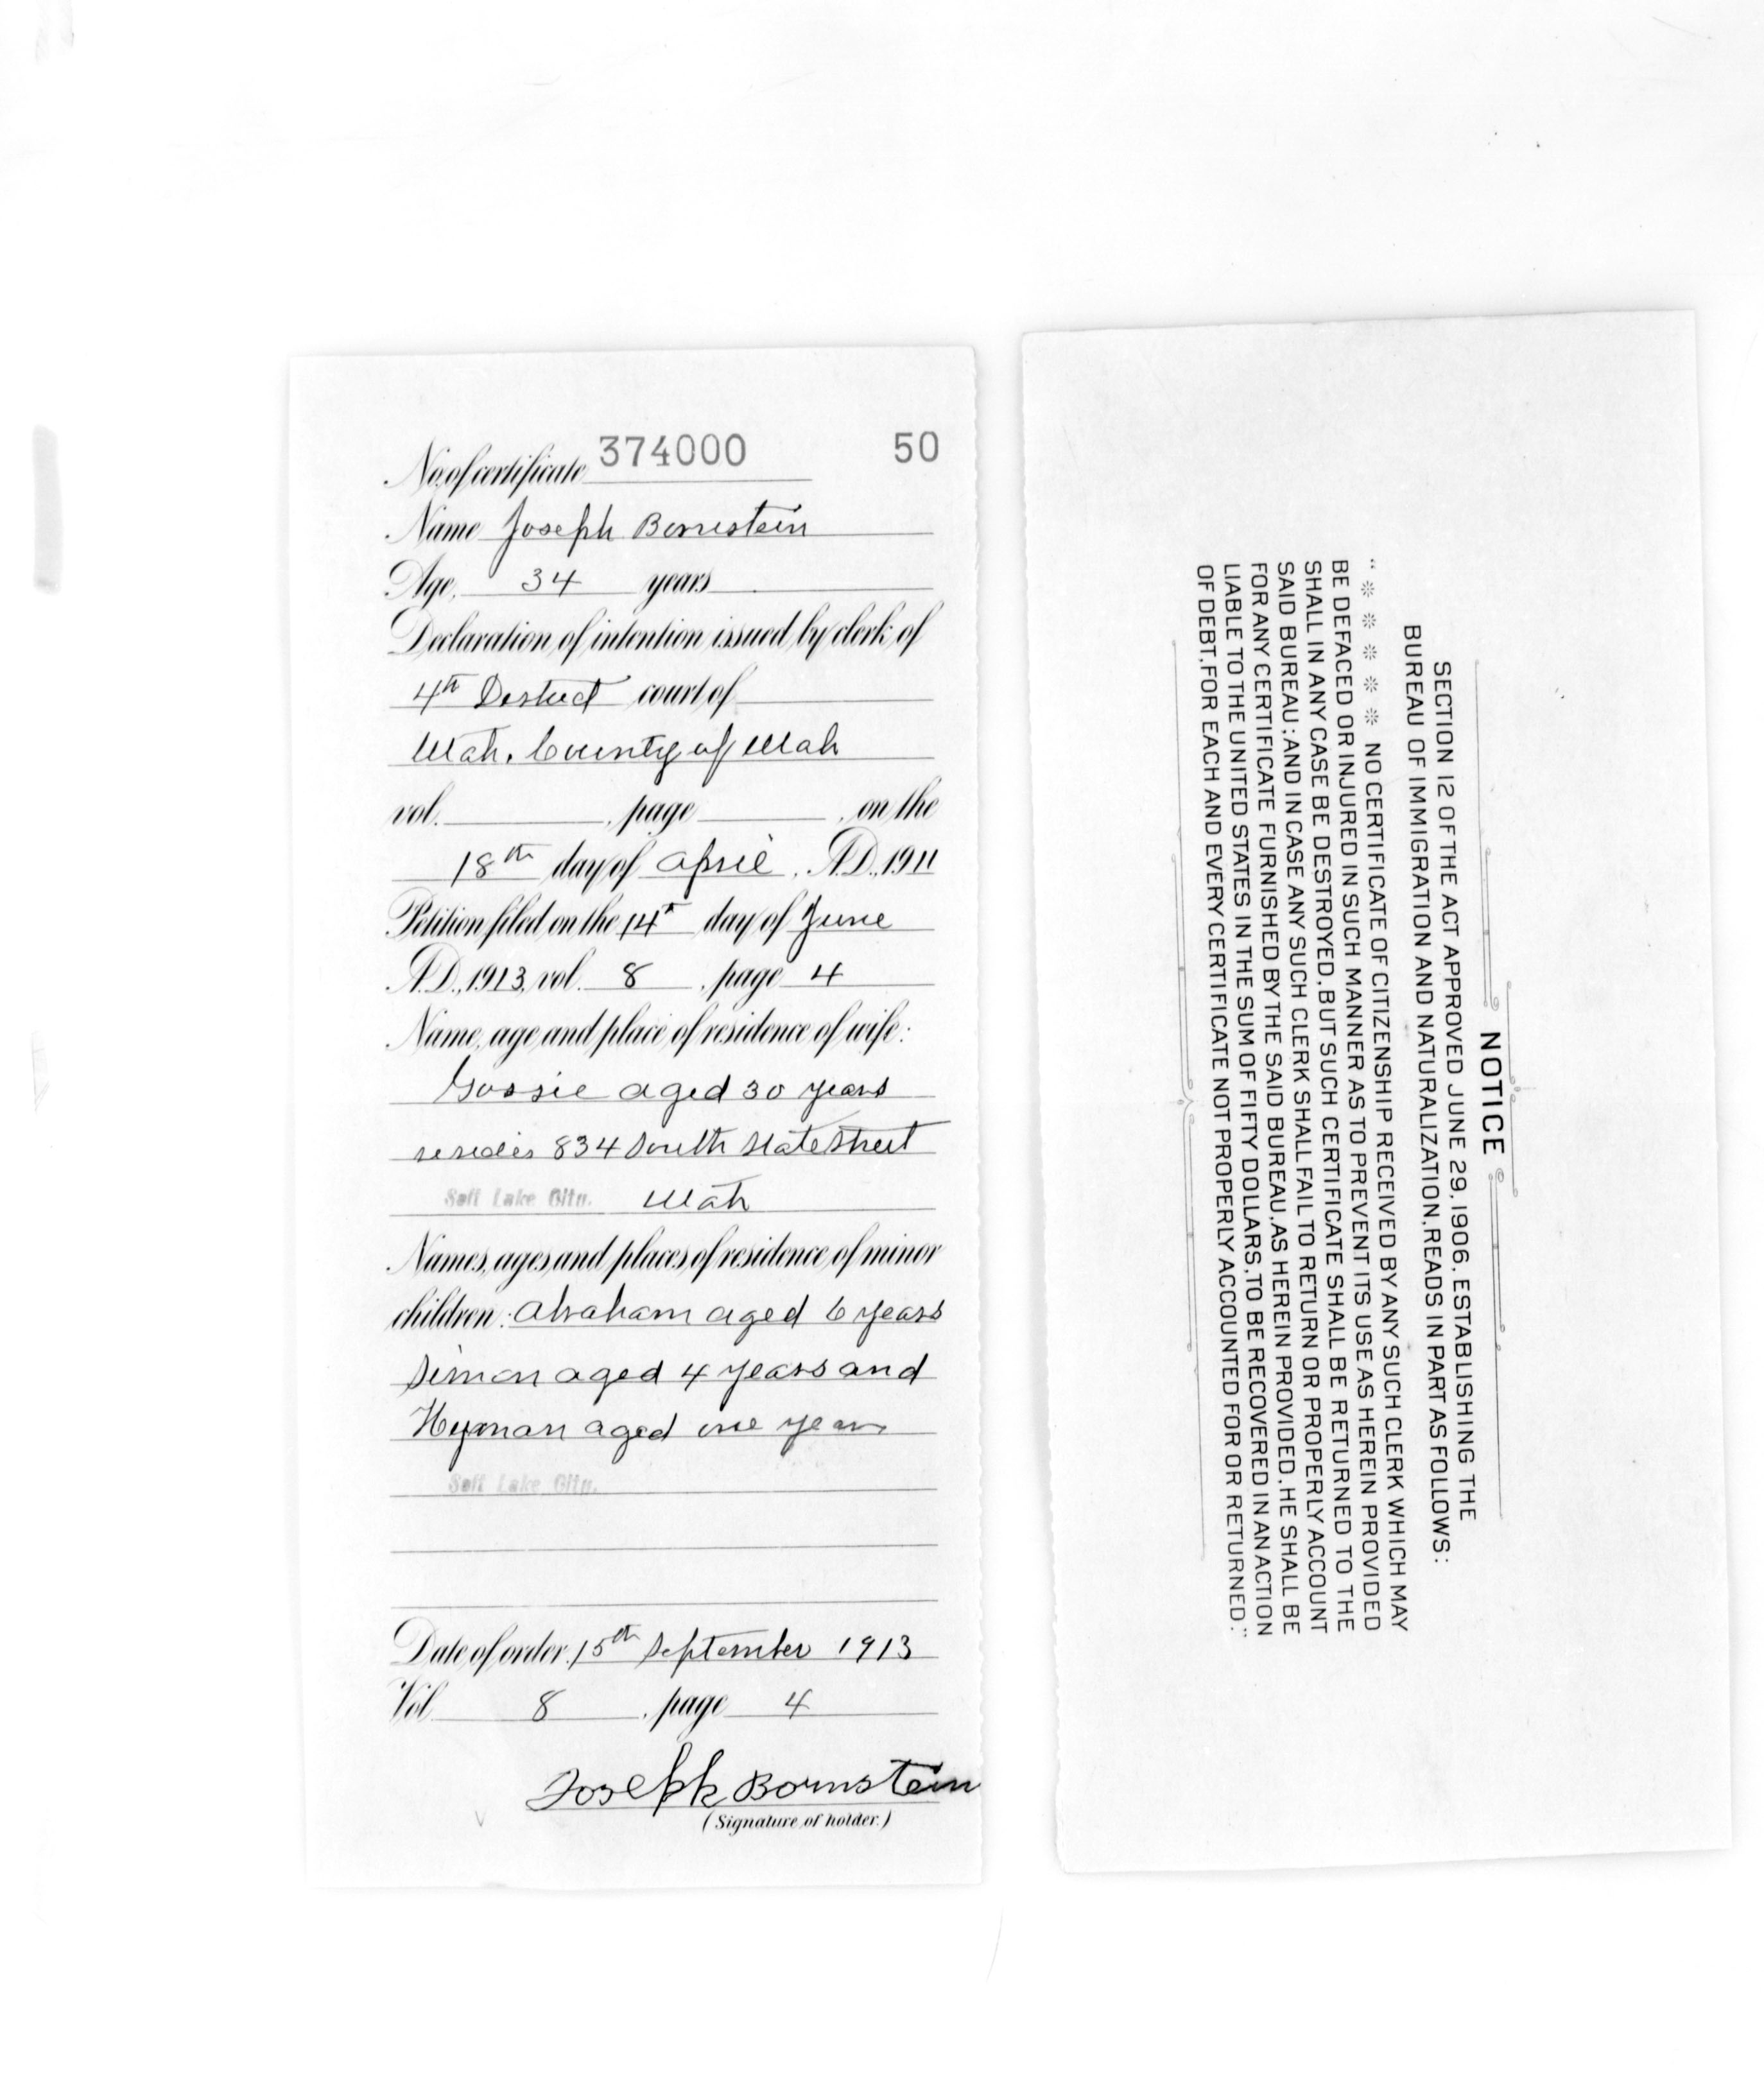 No. of certificate 374000 50
Name Joseph Bornstein
Age, 34 years
Declaration of intention issued by clerk of
4th District court of
Utah, County of Utah
vol. , page , on the
18th day of April, A.D., 1911
Petition filed on the 14th day of June
A.D., 1913, vol. 8, page 4
Name, age and place of residence of wife:
Gossie aged 30 years
resides 834 South State Street
Salt Lake City. Utah
Names, ages and places of residence of minor
children: Abraham aged 6 years
Simon aged 4 years and
Hyman aged one year
Salt Lake City.
Date of order, 15th September 1913
Vol. 8, page 4
Joseph Bornstein
(Signature of holder.)
NOTICE
SECTION 12 OF THE ACT APPROVED JUNE 29, 1906, ESTABLISHING THE
BUREAU OF IMMIGRATION AND NATURALIZATION, READS IN PART AS FOLLOWS:
"※ ※ ※ ※ ※ NO CERTIFICATE OF CITIZENSHIP RECEIVED BY ANY SUCH CLERK WHICH MAY
BE DEFACED OR INJURED IN SUCH MANNER AS TO PREVENT ITS USE AS HEREIN PROVIDED
SHALL IN ANY CASE BE DESTROYED, BUT SUCH CERTIFICATE SHALL BE RETURNED TO THE
SAID BUREAU; AND IN CASE ANY SUCH CLERK SHALL FAIL TO RETURN OR PROPERLY ACCOUNT
FOR ANY CERTIFICATE FURNISHED BY THE SAID BUREAU, AS HEREIN PROVIDED, HE SHALL BE
LIABLE TO THE UNITED STATES IN THE SUM OF FIFTY DOLLARS, TO BE RECOVERED IN AN ACTION
OF DEBT, FOR EACH AND EVERY CERTIFICATE NOT PROPERLY ACCOUNTED FOR OR RETURNED."